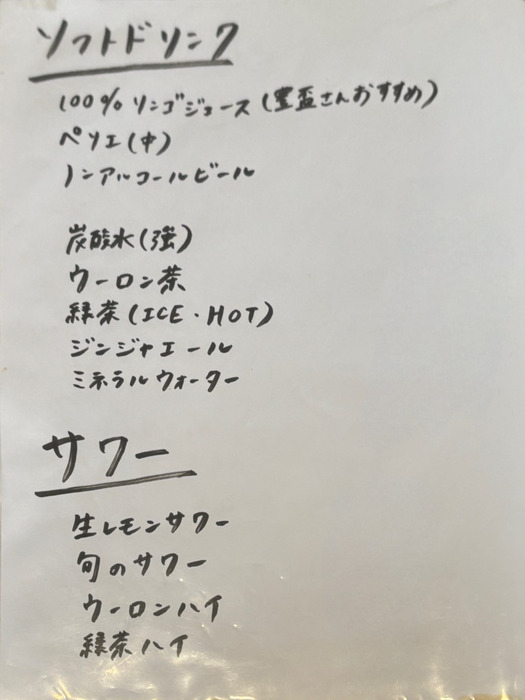 ソフトドリンク
100% リンゴジュース (豊盃さんおすすめ)
ペリエ (中)
ノンアルコールビール
炭酸水 (強)
ウーロン茶
緑茶 (ICE・HOT)
ジンジャエール
ミネラルウォーター
サワー
生レモンサワー
旬のサワー
ウーロンハイ
緑茶ハイ